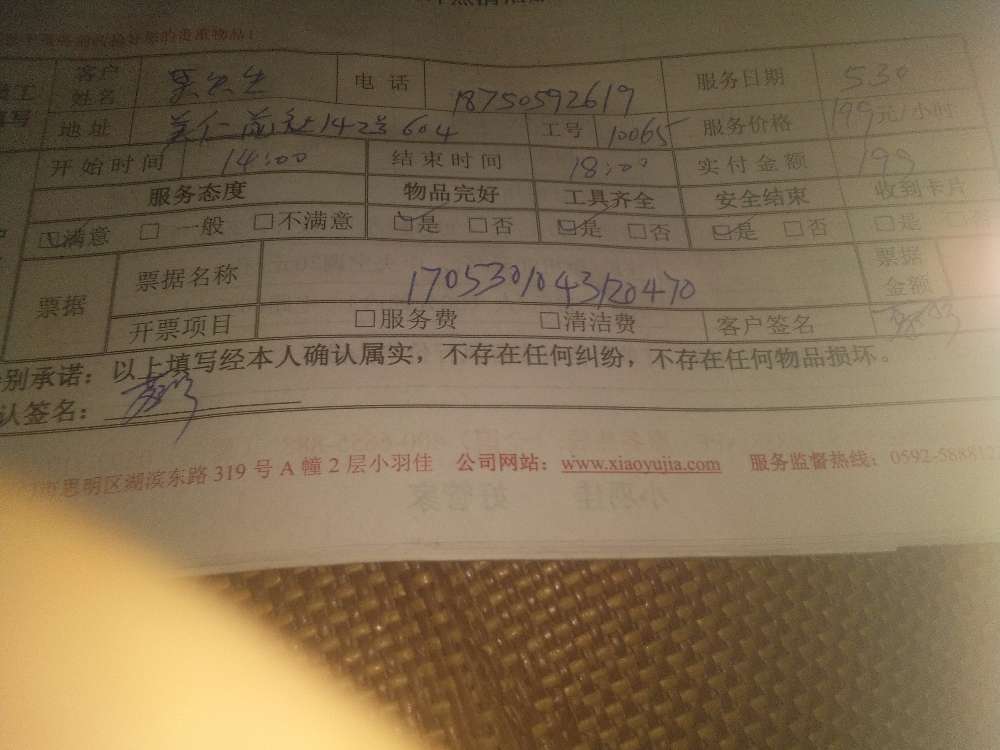 好您的贵重物品！
客户姓名 电话 18750592619 服务日期 530
地址 142号604 工号 10065 服务价格 199元/小时
开始时间 14:00 结束时间 18:00 实付金额 199
服务态度 物品完好 工具齐全 安全结束 收到卡片
☑满意 □一般 □不满意 ☑是 □否 ☑是 □否 ☑是 □否 □是
票据 票据名称 1705301043120470 票据金额
开票项目 □服务费 □清洁费 客户签名
别承诺：以上填写经本人确认属实，不存在任何纠纷，不存在任何物品损坏。
认签名：
市思明区湖滨东路 319 号 A 幢 2 层小羽佳 公司网站：www.xiaoyujia.com 服务监督热线：0592-588812